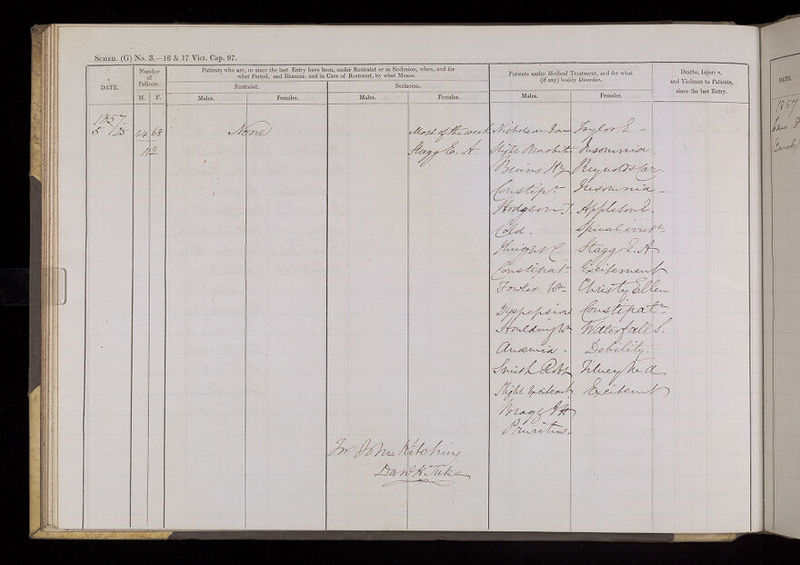 SCHED. (G) No. 3.—16 & 17 Vict. Cap. 97.
DATE.
Number of Patients.
M. F.
Patients who are, or since the last Entry have been, under Restraint or in Seclusion, when, and for
what Period, and Reasons, and in Case of Restraint, by what Means.
Restraint.
Seclusion.
Males. Females. Males. Females.
Patients under Medical Treatment, and for what
(if any) bodily Disorder.
Males. Females.
Deaths, Injuries,
and Violence to Patients,
since the last Entry.
1857
5/25 44 68 None Most of the week Nicholson Taylor E
112 Stagg E. A. Slight Insomnia
Binns Hy Reynolds Car.
Constipt Insomnia
Hodgson J. Appleton E.
Cold. Spinal irrit
Knight C. Stagg E. A
Constipatn Excitement
Fowler Wm Christy Ellen
Dyspepsia Constipatn
Waterfall S.
Anæmia. Debility.
Smith Robt
Slight Excitemt Excitemt
Pruritus.
For John Kitching
Danl H. Tuke
DATE.
1857